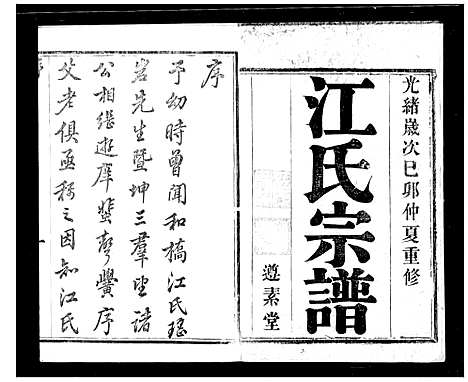 光緒歲次己卯仲夏重修
江氏宗譜
遵素堂
序
予幼時曾聞和橋江氏瑶
岩先生暨坤三羣望諸
公相繼遊庠蜚聲黌序
父老俱亟稱之因知江氏